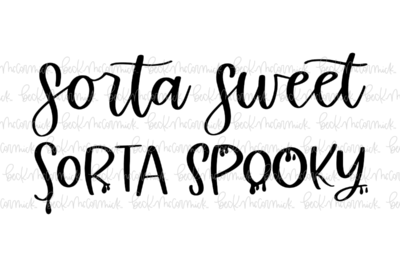 sorta sweet
SORTA SPOOKY